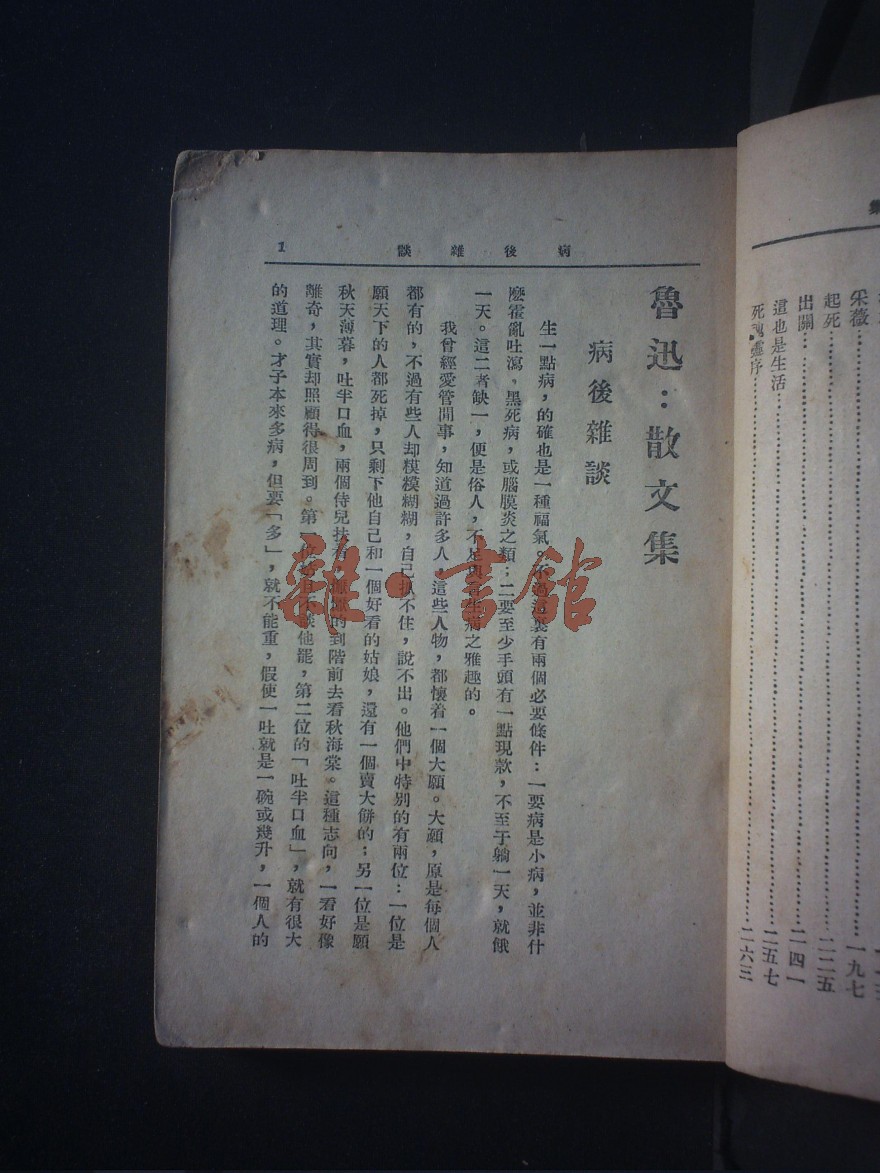 采薇……一九七
起死……二二五
出關……二四一
這也是生活……二五七
死魂靈序……二六三
病後雜談
1
魯迅：散文集
病後雜談
生一點病，的確也是一種福氣。不過這裏有兩個必要條件：一要病是小病，並非什
麼霍亂吐瀉，黑死病，或腦膜炎之類；二要至少手頭有一點現款，不至于躺一天，就餓
一天。這二者缺一，便是俗人，不足與言生病之雅趣的。
我曾經愛管閒事，知道過許多人，這些人物，都懷着一個大願。大願，原是每個人
都有的，不過有些人却模模糊糊，自己抓不住，說不出。他們中特別的有兩位：一位是
願天下的人都死掉，只剩下他自己和一個好看的姑娘，還有一個賣大餅的；另一位是願
秋天薄暮，吐半口血，兩個侍兒扶着，懨懨的到階前去看秋海棠。這種志向，一看好像
離奇，其實却照顧得很周到。第一位姑且不談他罷，第二位的「吐半口血」，就有很大
的道理。才子本來多病，但要「多」，就不能重，假使一吐就是一碗或幾升，一個人的
雜·書館